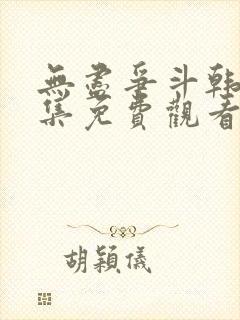 無盡爭斗韩
集免費觀看
胡穎儀